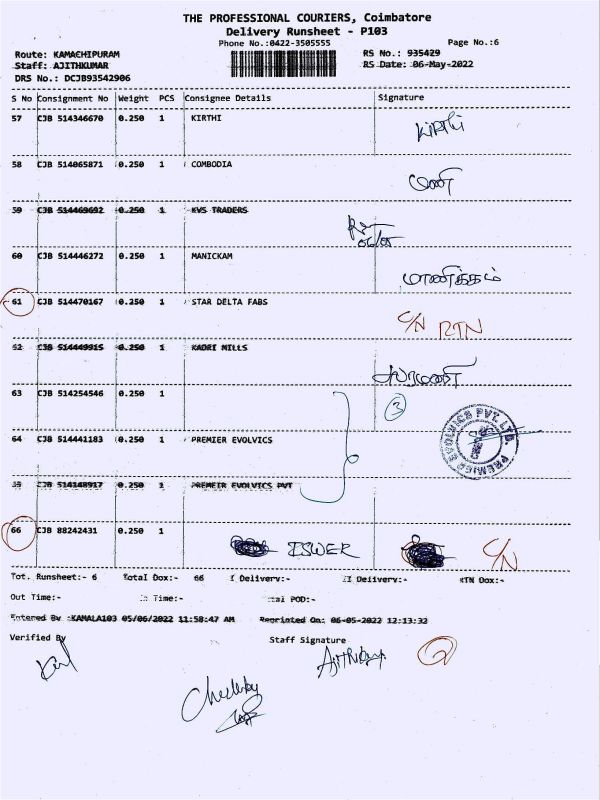 THE PROFESSIONAL COURIERS, Coimbatore
Delivery Runsheet - P103
Phone No.:0422-3505555 Page No.:6
Route: KAMACHIPURAM RS No.: 935429
Staff: AJITHKUMAR RS Date: 06-May-2022
DRS No.: DCJB93542906
S No Consignment No Weight PCS Consignee Details Signature
57 CJB 514346670 0.250 1 KIRTHI
Kirthi
58 CJB 514065871 0.250 1 COMBODIA
மணி
59 CJB 514469692 0.250 1 KVS TRADERS
60 CJB 514446272 0.250 1 MANICKAM
மாணிக்கம்
61 CJB 514470167 0.250 1 STAR DELTA FABS
C/N RTN
62 CJB 514449915 0.250 1 KADRI MILLS
63 CJB 514254546 0.250 1
3
64 CJB 514441183 0.250 1 PREMIER EVOLVICS
PREMIER EVOLVICS PVT. LTD.
CJB 514148917 0.250 1 PREMEIR EVOLVICS PVT
66 CJB 88242431 0.250 1
ISWER C/N
Tot. Runsheet:- 6 Total Dox:- 66 I Delivery:- II Delivery:- RTN Dox:-
Out Time:- In Time:- POD:-
Entered By :KAMALA103 05/06/2022 11:58:47 AM Reprinted On: 06-05-2022 12:13:32
Verified By Staff Signature
2